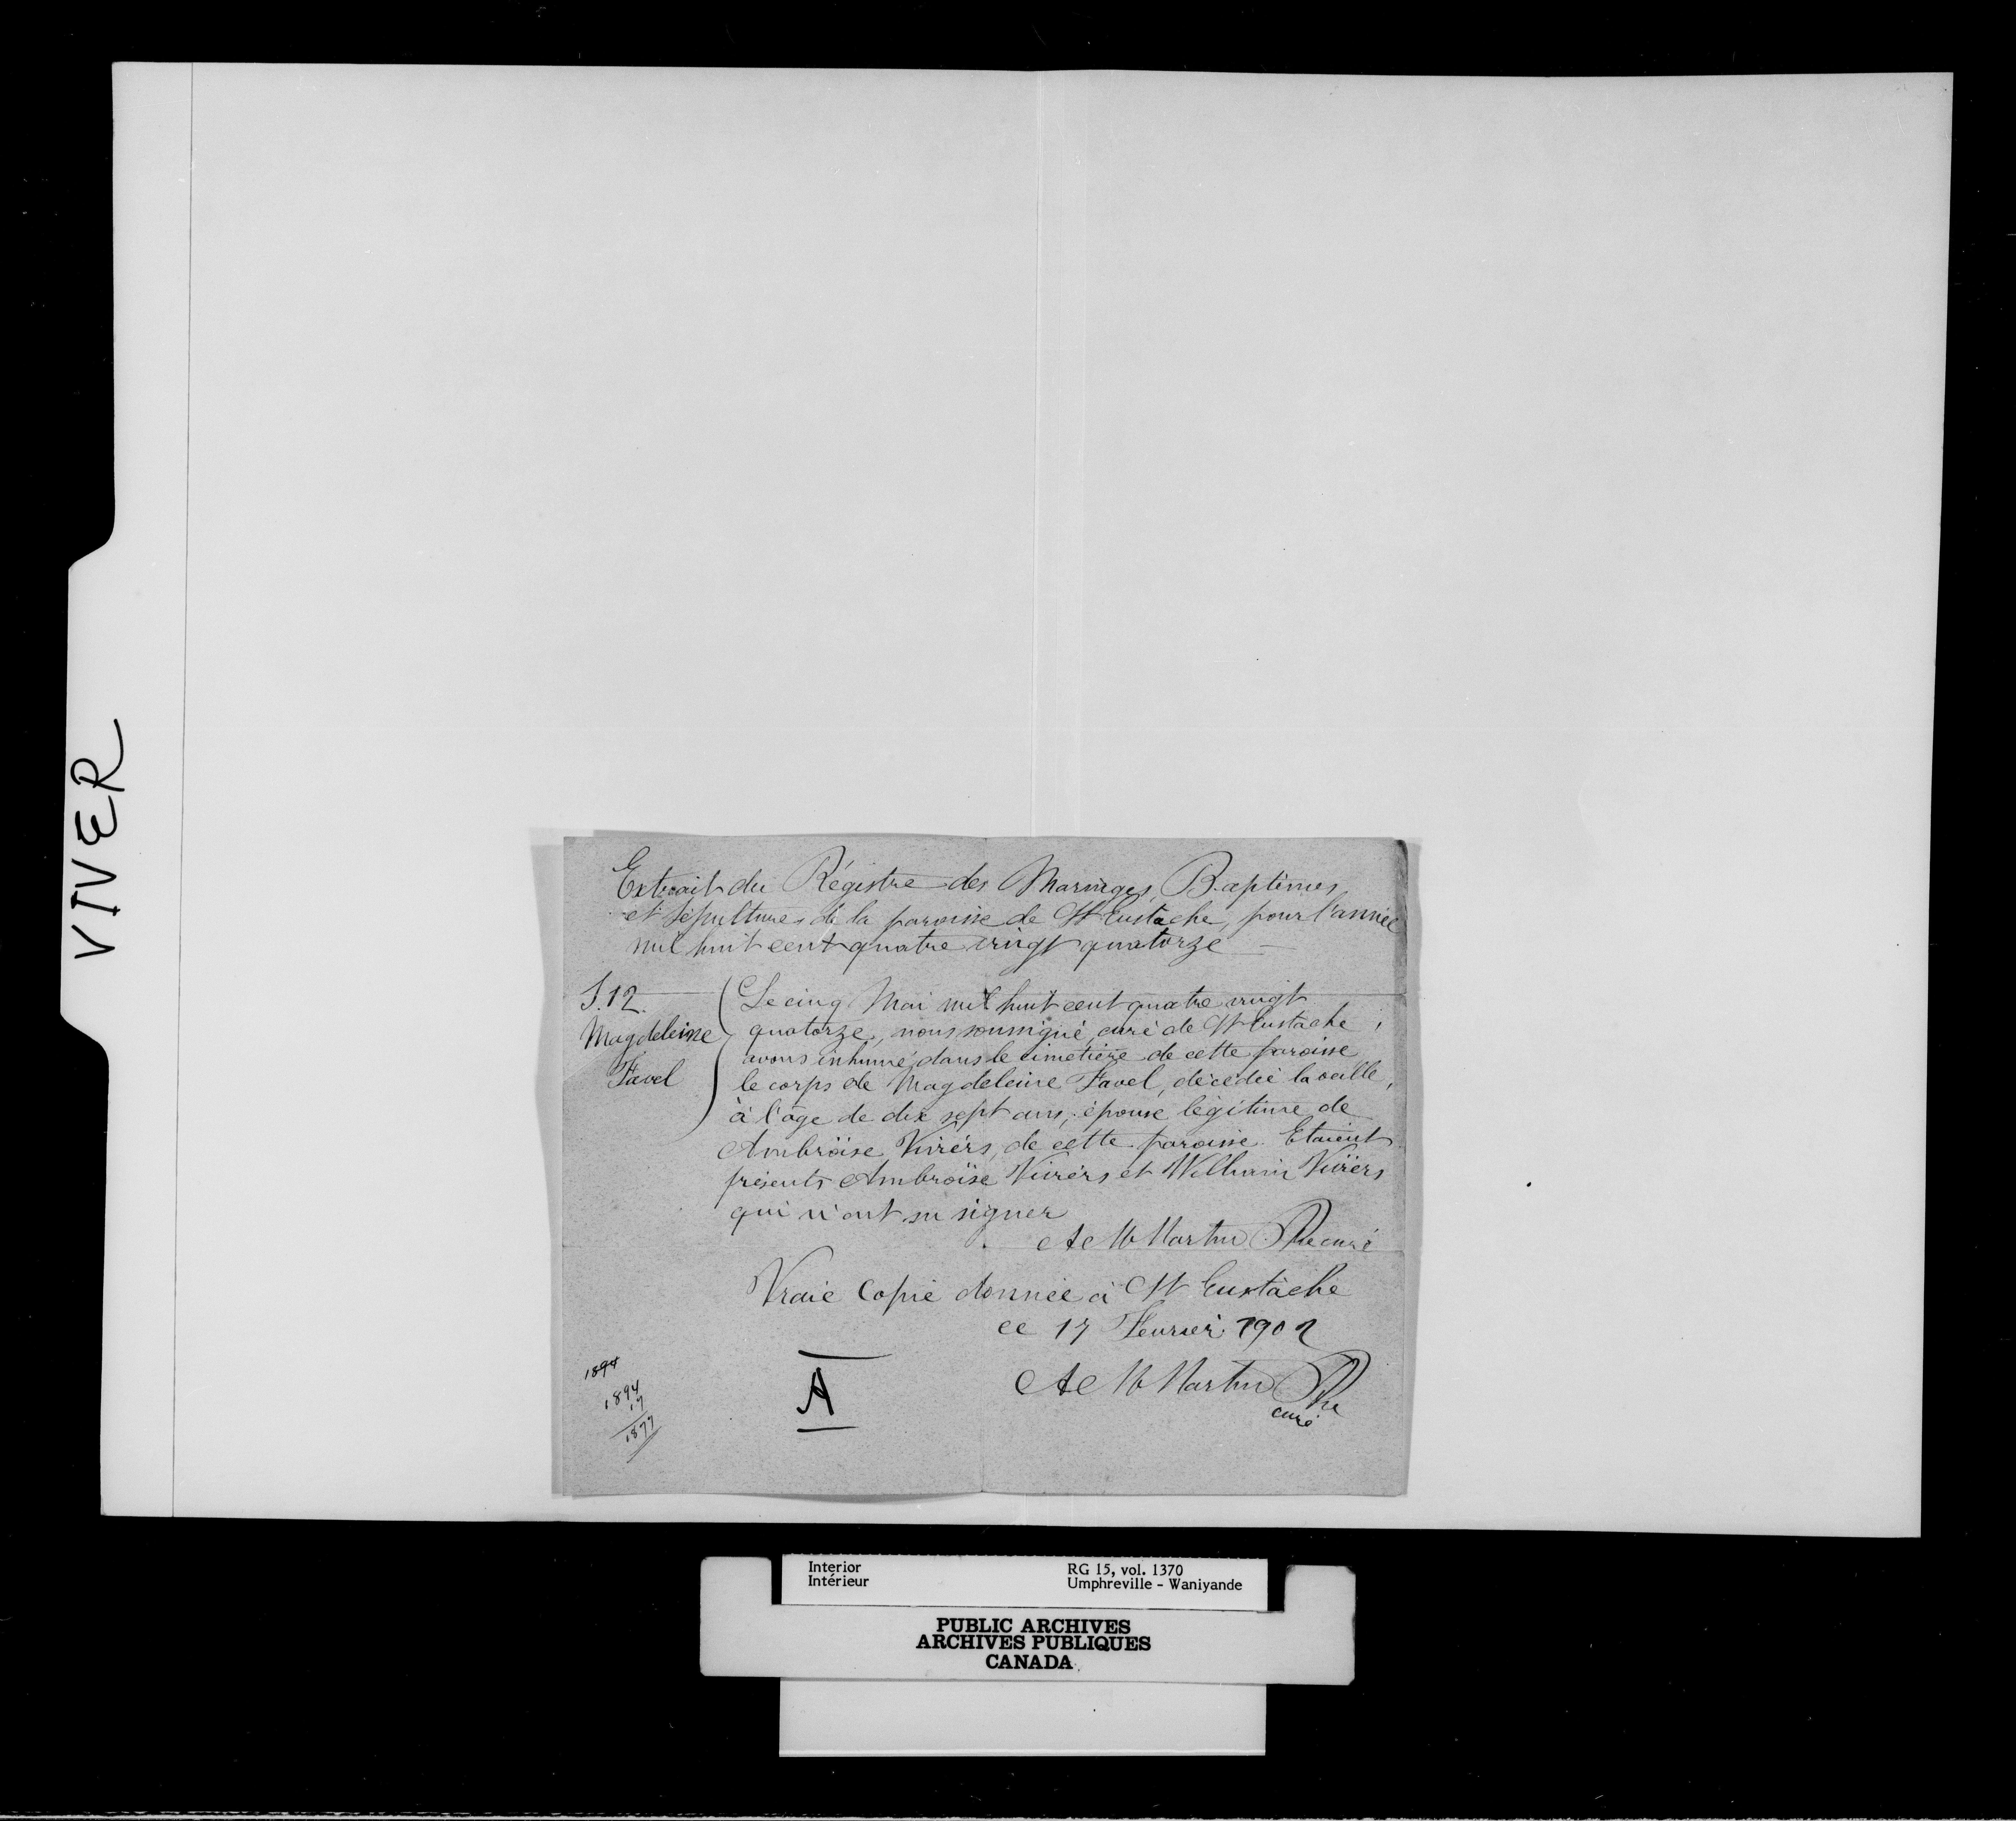 VIVER
Extrait du Régistre des Mariages, Baptêmes
et Sépultures de la paroisse de St Eustache, pour l'année
mil huit cent quatre vingt quatorze
S. 12.
Magdeleine
Favel
Le cinq Mai mil huit cent quatre vingt
quatorze, nous soussigné, curé de St Eustache,
avons inhumé dans le cimetière de cette paroisse
le corps de Magdeleine Favel, décédée la veille,
à l'âge de dix sept ans, épouse légitime de
Ambroïse Viviers, de cette paroisse. Etaient
présents Ambroïse Viviers et William Viviers
qui n'ont su signer
A M Martin Ptre curé
Vraie Copie donnée à St Eustache
ce 17 Février 1902
A M Martin Ptre
curé
A
1894
1894
17
1877
Interior
Intérieur
RG 15, vol. 1370
Umphreville - Waniyande
PUBLIC ARCHIVES
ARCHIVES PUBLIQUES
CANADA